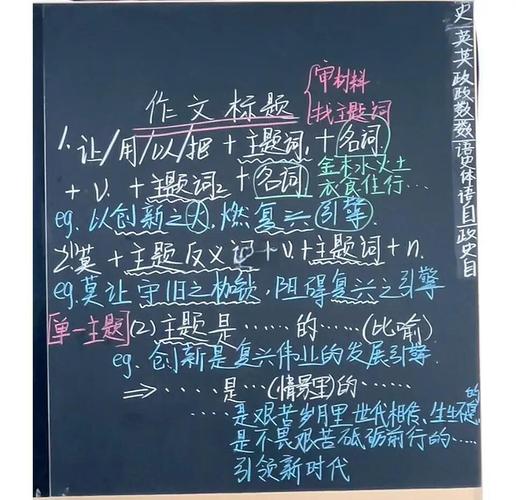 作文标题
审材料
找主题词
1. 让/用/以/把 + 主题词1 + 名词.
+ v. + 主题词2 + 名词
金木水火土
衣食住行…
eg. 以创新之火,燃复兴引擎
莫 + 主题反义词 + v. + 主题词 + n.
eg. 莫让守旧之枷锁,阻碍复兴之引擎
单一主题 (2) 主题是……的……(比喻)
eg. 创新是复兴伟业的发展引擎.
⇒ ……是…(情景里)的……
是艰苦岁月里世代相传、生生不息的
是不畏艰苦砥砺前行的……
引领新时代
史英英政政数数语史体语自政史自